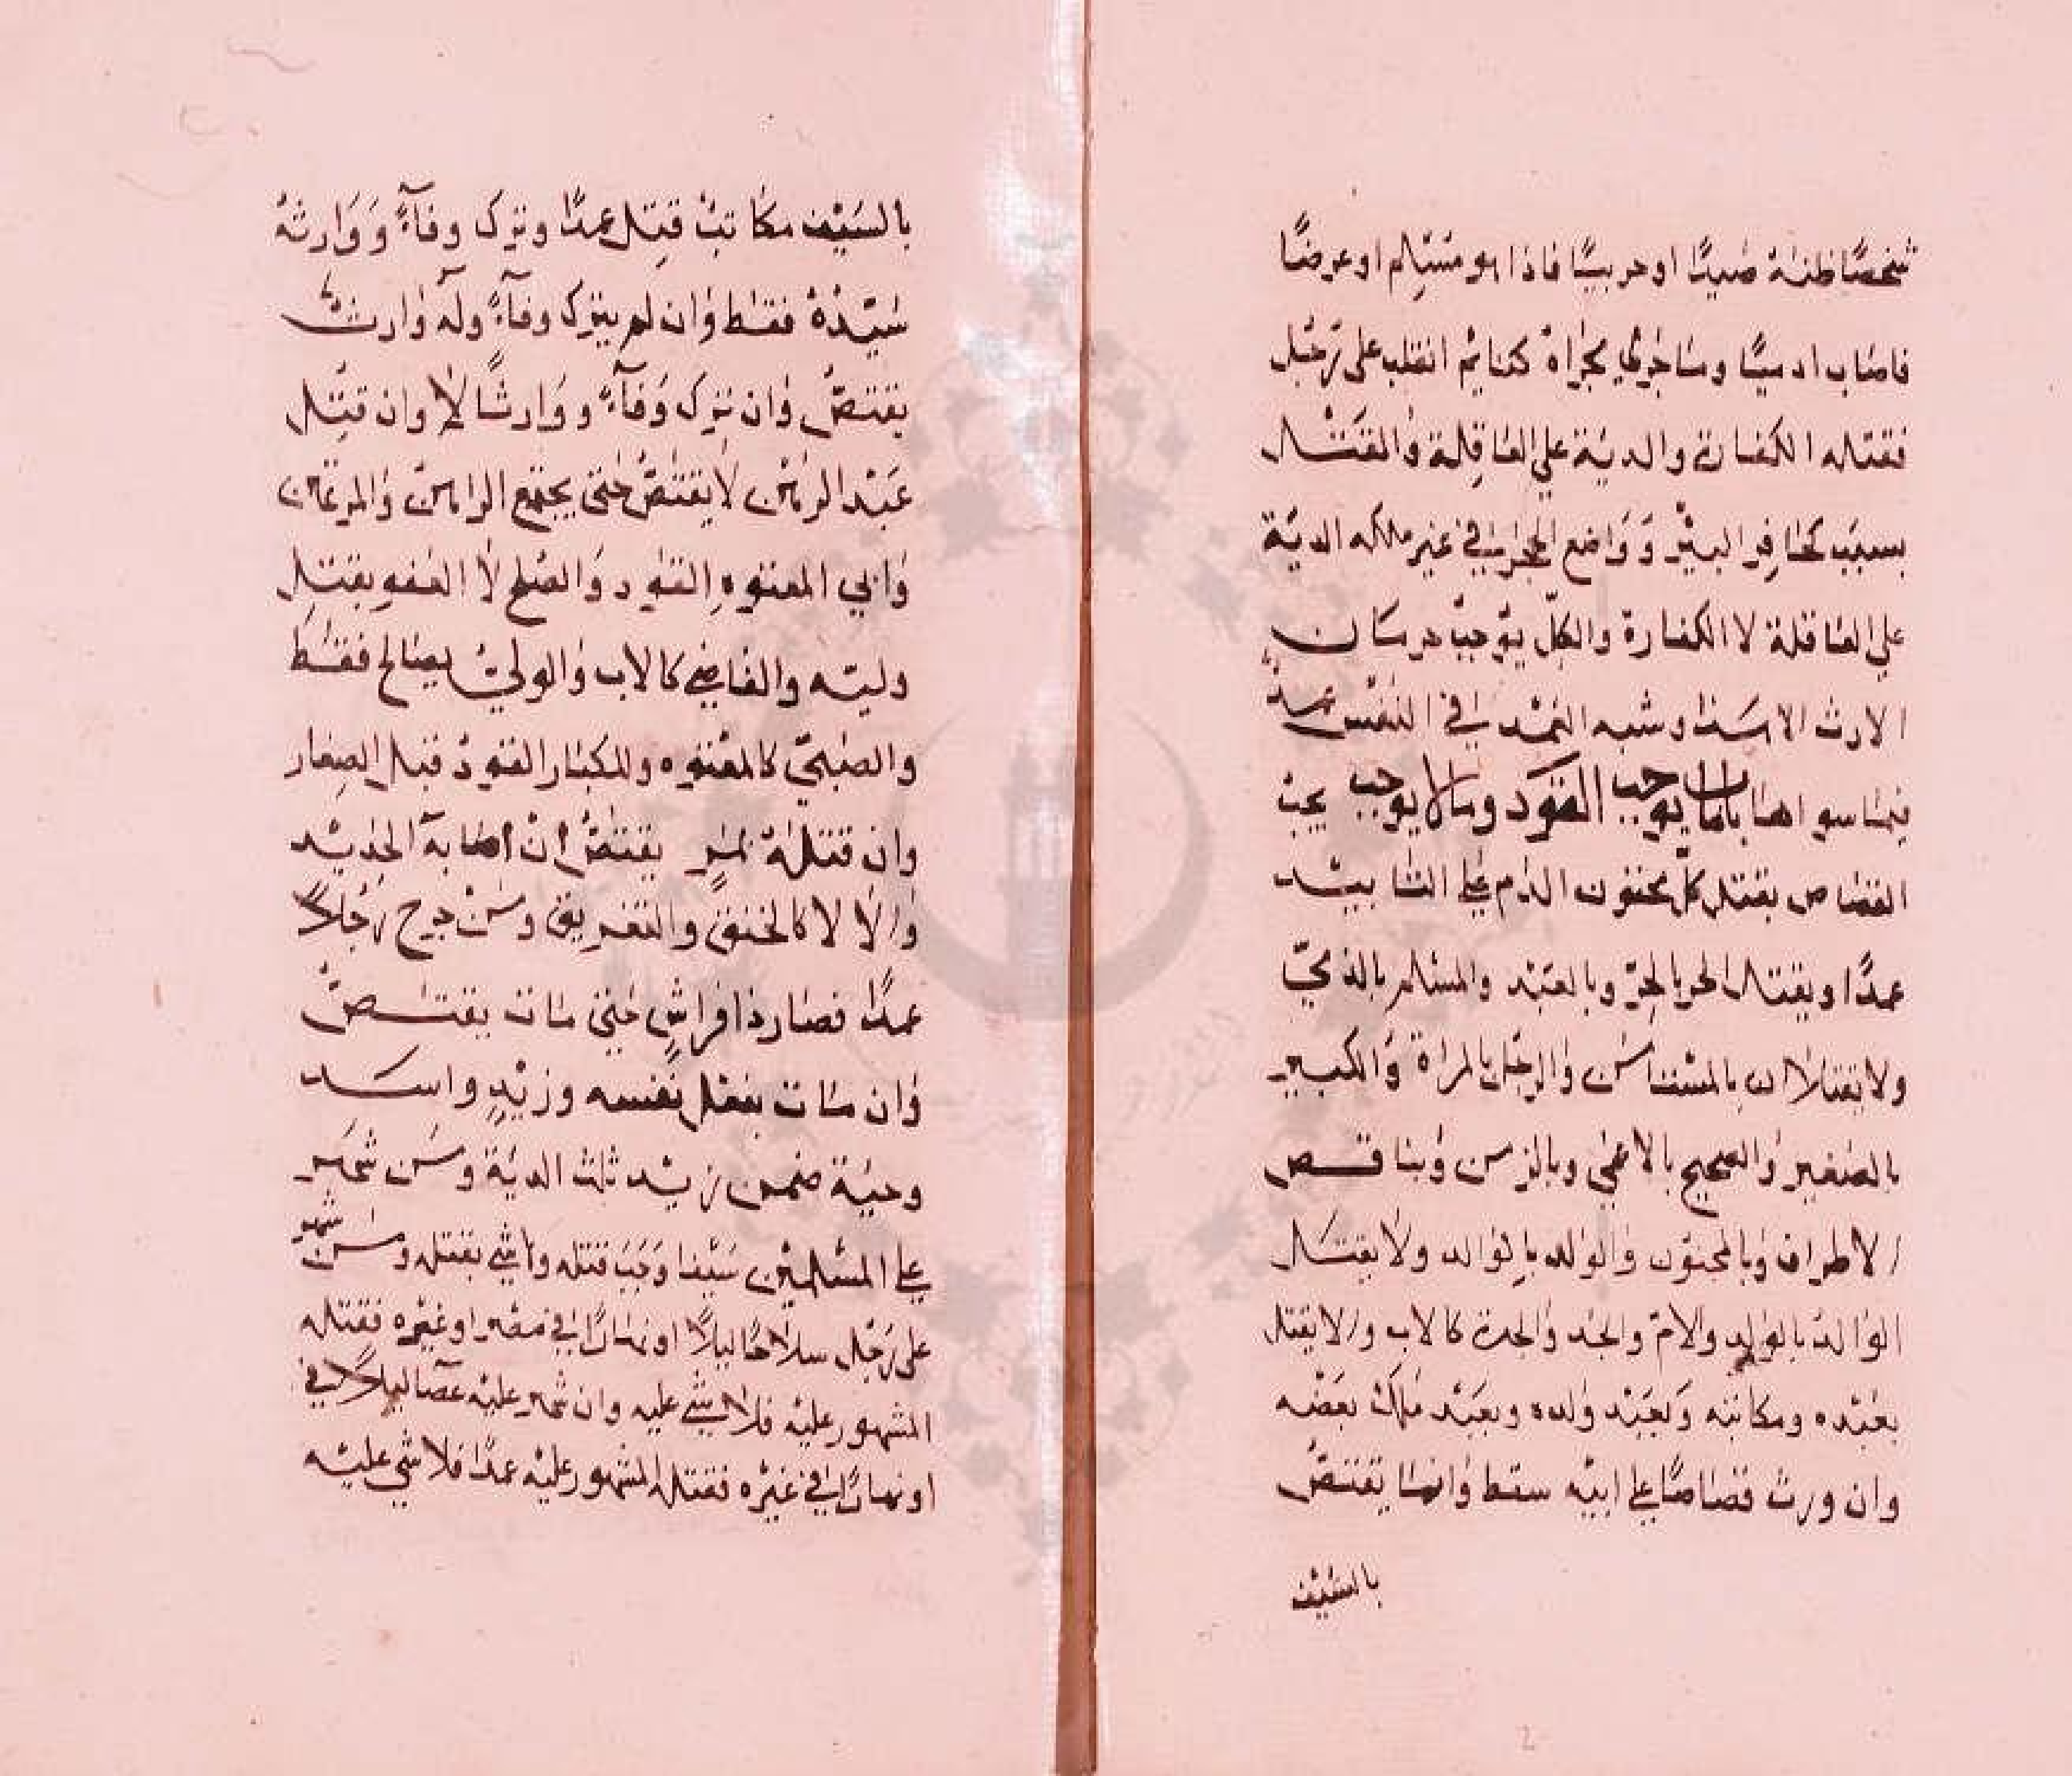 شخصا ظنه صيدا او حربيا فاذا هو مسلم او عرضا
فاصاب ادميا وما جري مجراه كنايم انقلب على رجل
فقتله الكفارة والدية على العاقلة والقتل
بسبب كحافر البئر وواضع الحجر في غير ملكه الدية
على العاقلة لا الكفارة والكل يوجب حرمان
الارث الا هذا وشبه العمد في النفس عمد
فيما سواها باب ما يوجب القود وما لا يوجب يجب
القصاص بقتل كل محقون الدم على التابيد
عمدا ويقتل الحر بالحر وبالعبد والمسلم بالذمي
ولا يقتلان بالمستامن والرجل بالمراة والكبير
بالصغير والصحيح بالاعمي وبالزمن وبناقص
الاطراف وبالمجنون والولد بالوالد ولا يقتل
الوالد بالولد والام والجد والجدة كالاب ولا يقتل
بعبده ومكاتبه وبعبد ولده وبعبد ملك بعضه
وان ورث قصاصا على ابيه سقط وانما يقتص
بالسيف
بالسيف مكاتب قتل عمدا وترك وفآء ووارثه
سيده فقط وان لم يترك وفآء وله وارث
يقتص وان ترك وفآء ووارثا لا وان قتل
عبد الرهن لا يقتص حتى يجتمع الراهن والمرتهن
ولابي المعتوه القود والصلح لا العفو بقتل
وليه والقاضي كالاب والولي يصالح فقط
والصبي كالمعتوه وللكبار القود قبل الصغار
وان قتله بمر يقتص ان اصابه الحديد
والا لا كالخنق والتغريق ومن جرح رجلا
عمدا فصار ذا فراش حتى مات يقتص
وان مات بفعل نفسه وزيد واسد
وحية ضمن زيد ثلث الدية ومن شهر
على المسلمين سيفا وجب قتله ولا شي بقتله ومن شهر
على رجل سلاحا ليلا او نهارا في مصر او غيره فقتله
المشهور عليه فلا شي عليه وان شهر عليه عصا ليلا في
او نهارا في غيره فقتله المشهور عليه عمدا فلا شي عليه